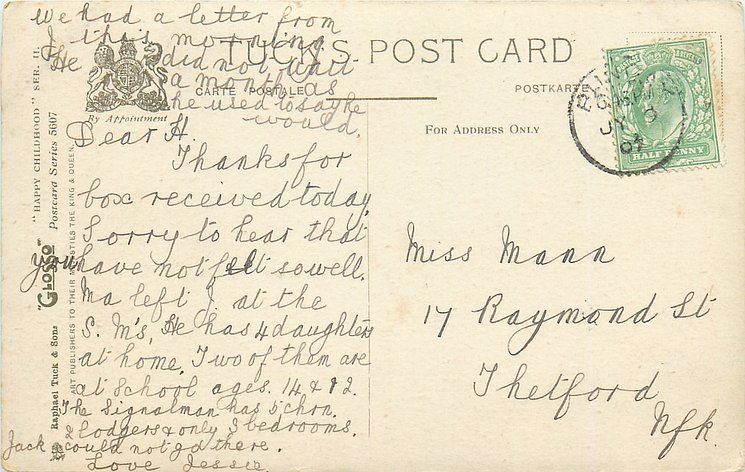 We had a letter from
J this morning
He did not wait
a month as
he used to say he
would.
TUCK'S POST CARD
CARTE POSTALE
POSTKARTE
By Appointment
FOR ADDRESS ONLY
HALF PENNY
"HAPPY CHILDHOOD" SER. II.
Postcard Series 5607
"GLOSSO"
Raphael Tuck & Sons
ART PUBLISHERS TO THEIR MAJESTIES THE KING & QUEEN.
Dear H.
Thanks for
box received today,
Sorry to hear that
you have not felt so well.
Ma left J at the
S. M's, He has 4 daughters
at home. Two of them are
at School ages. 14 & 12.
The Signalman has 5 chrn.
2 lodgers & only 3 bedrooms.
Jack could not go there.
Love Jessie
Miss Mann
17 Raymond St
Thetford
Nfk.